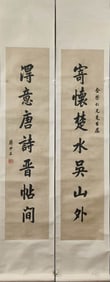 寄懷楚水吳山外
得意唐詩晉帖间